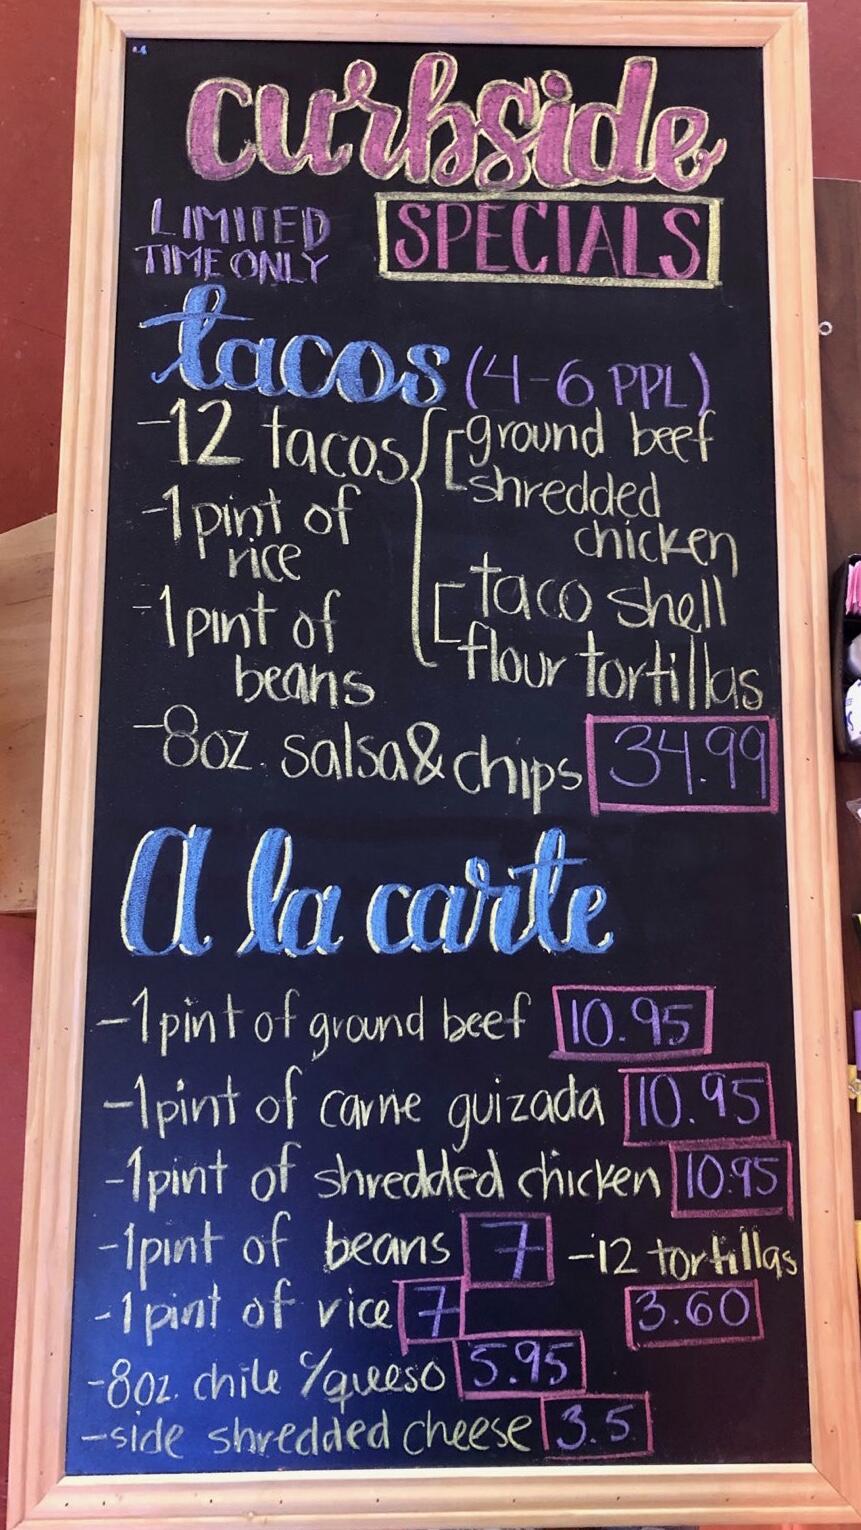 curbside
LIMITED
TIME ONLY
SPECIALS
tacos (4-6 PPL)
-12 tacos
ground beef
shredded
chicken
-1 pint of
rice
taco shell
flour tortillas
-1 pint of
beans
-8oz. salsa & chips 34.99
A la carte
-1 pint of ground beef 10.95
-1 pint of carne guizada 10.95
-1 pint of shredded chicken 10.95
-1 pint of beans 7
-12 tortillas
-1 pint of rice 7
3.60
-8oz. chile c/queso 5.95
-side shredded cheese 3.5